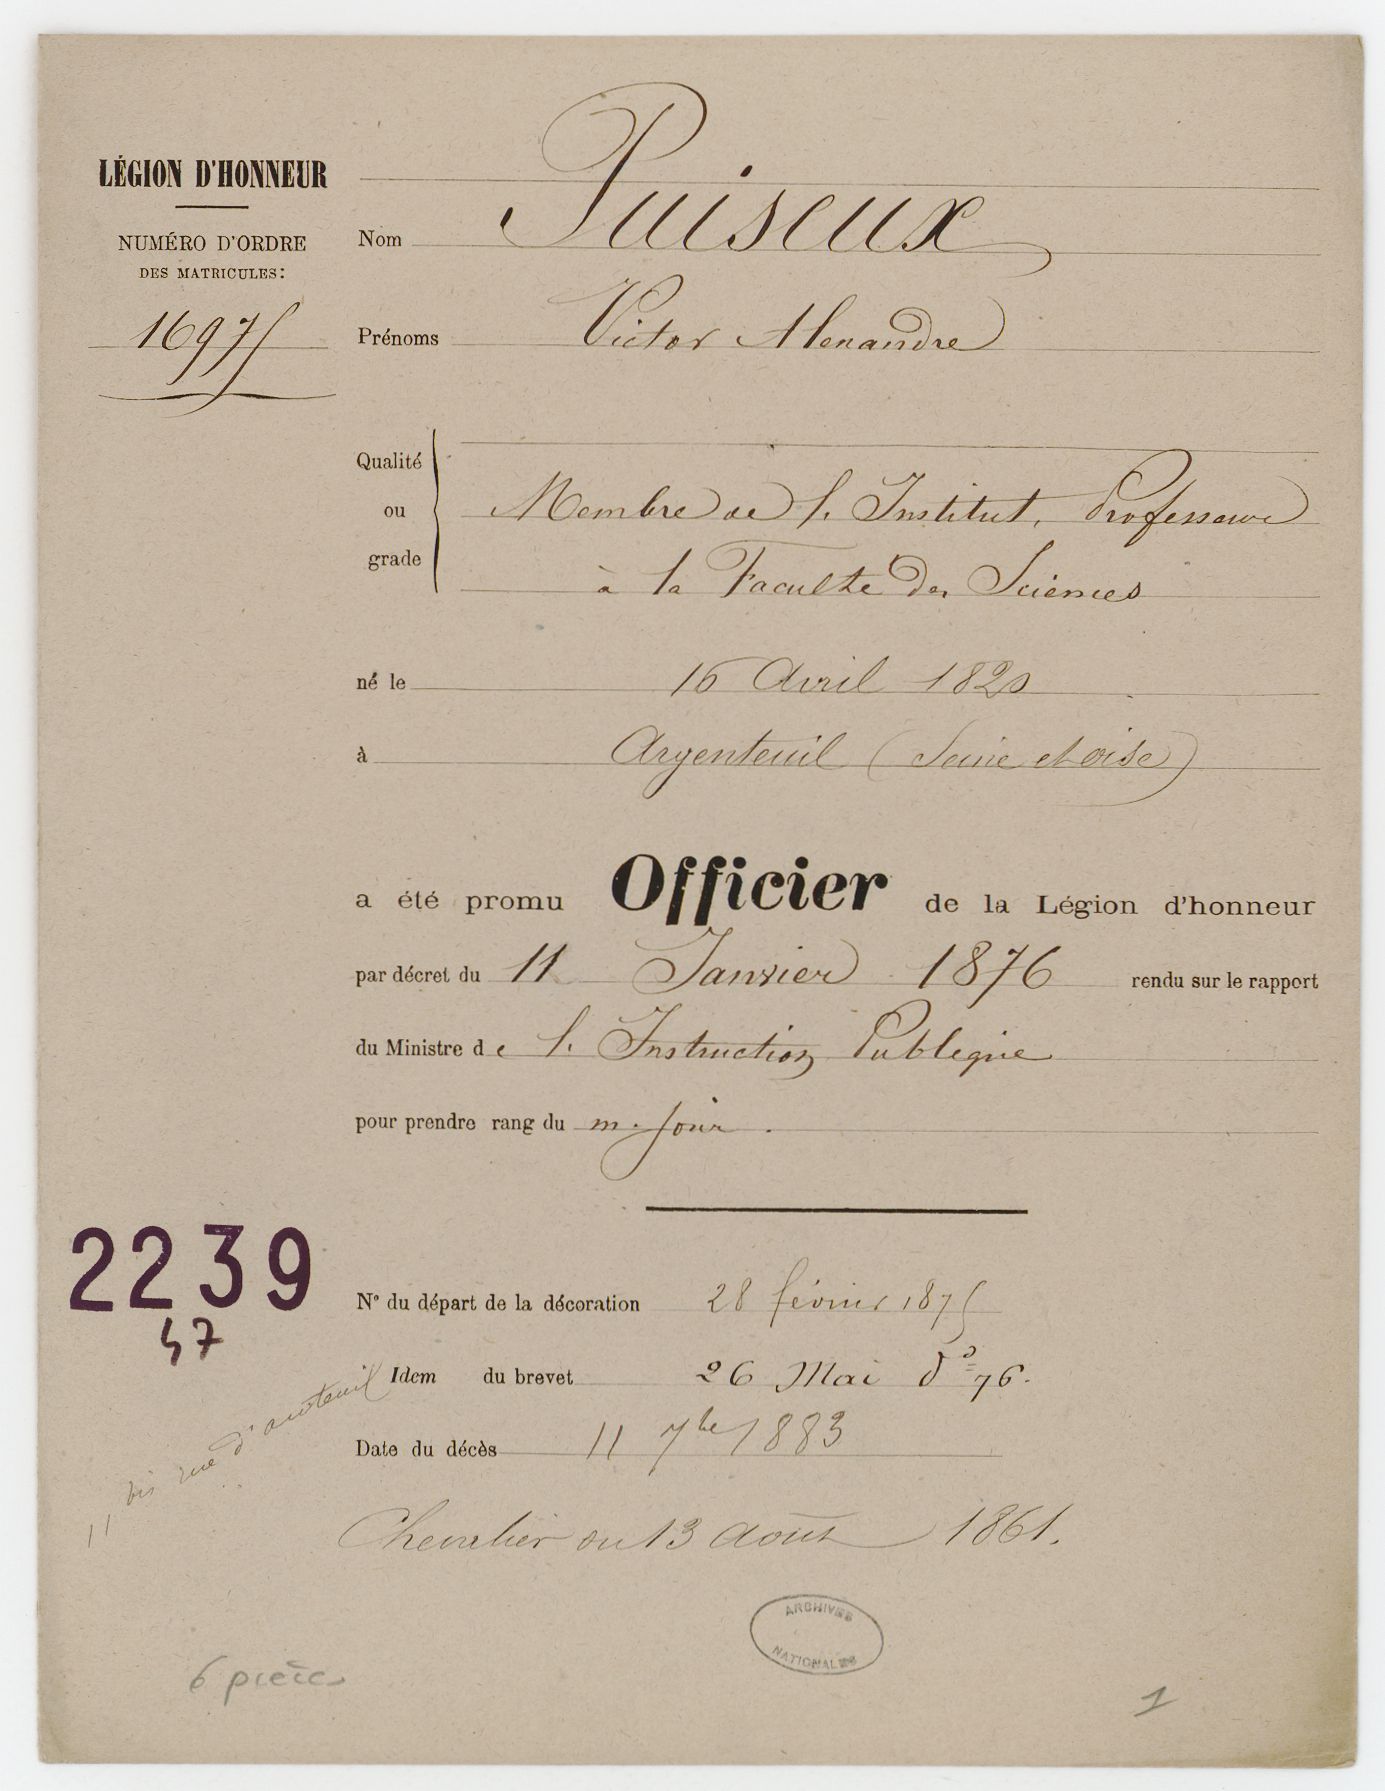 LÉGION D'HONNEUR
NUMÉRO D'ORDRE
DES MATRICULES:
16975
Nom Puiseux
Prénoms Victor Alexandre
Qualité
ou
grade
Membre de l'Institut, Professeur
à la Faculté des Sciences
né le 16 Avril 1820
à Argenteuil (Seine et oise)
a été promu Officier de la Légion d'honneur
par décret du 11 Janvier 1876 rendu sur le rapport
du Ministre de l'Instruction Publique
pour prendre rang du m. jour.
2239
47
N° du départ de la décoration 28 février 1875
Idem du brevet 26 Mai do 76.
Date du décès 11 7bre 1883
11 bis rue d'auteuil
Chevalier du 13 août 1861.
ARCHIVES
NATIONALES
6 pièces
1